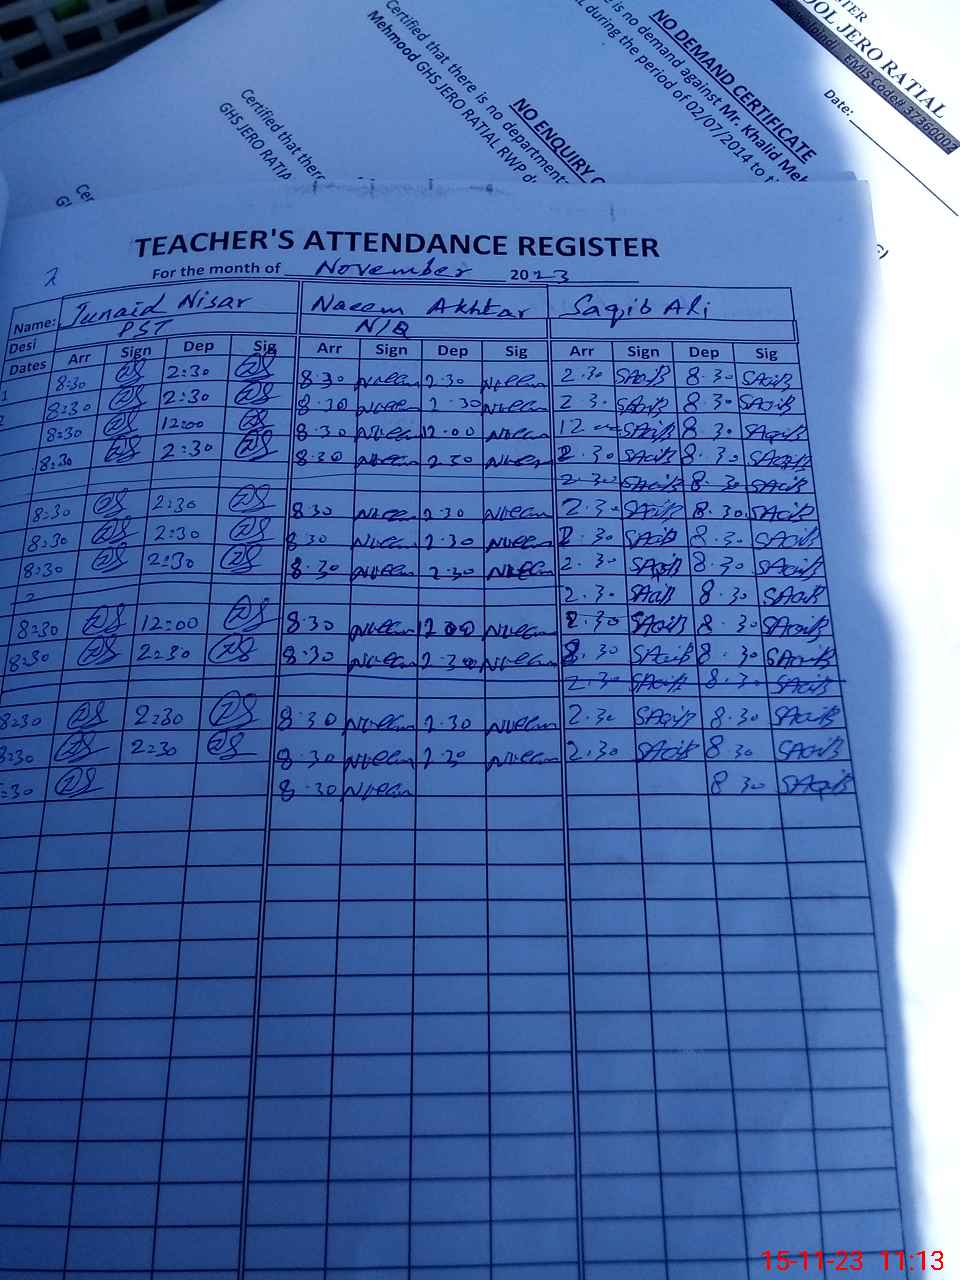 NTER
OOL JERO RATIAL
EMIS Code# 37360002
Date:
e is no demand against Mr. Khalid Meh
during the period of 02/07/2014 to t
NO DEMAND CERTIFICATE
Certified that there is no department
Mehmood GHS JERO RATIAL RWP d
NO ENQUIRY C
Certified that ther
GHS JERO RATIA
Cer
TEACHER'S ATTENDANCE REGISTER
For the month of November 2023
Name: Junaid Nisar Naeem Akhtar Saqib Ali
Desi PST N/Q
Dates Arr Sign Dep Sig Arr Sign Dep Sig Arr Sign Dep Sig
1 8:30 2:30 8.30 Naeem 2.30 Naeem 2.30 SAqiB 8.30 SAqiB
2 8:30 2:30 8.30 Naeem 2.30 Naeem 2.30 SAqiB 8.30 SAqiB
8:30 12:00 8.30 Naeem 12.00 Naeem 12.00 SAqiB 8.30 SAqiB
8:30 2:30 8.30 Naeem 2.30 Naeem 2.30 SAqiB 8.30 SAqiB
2.30 SAqiB 8.30 SAqiB
8:30 2:30 8.30 Naeem 2.30 Naeem 2.30 SAqiB 8.30 SAqiB
8:30 2:30 8.30 Naeem 2.30 Naeem 2.30 SAqiB 8.30 SAqiB
8:30 2:30 8.30 Naeem 2.30 Naeem 2.30 SAqiB 8.30 SAqiB
2.30 SAqiB 8.30 SAqiB
8:30 12:00 8.30 Naeem 12.00 Naeem 2.30 SAqiB 8.30 SAqiB
8:30 2:30 8.30 Naeem 2.30 Naeem 2.30 SAqiB 8.30 SAqiB
2.30 SAqiB 8.30 SAqiB
8:30 2:30 8.30 Naeem 2.30 Naeem 2.30 SAqiB 8.30 SAqiB
8:30 2:30 8.30 Naeem 2.30 Naeem 2.30 SAqiB 8.30 SAqiB
:30 8.30 Naeem 8.30 SAqiB
15-11-23 11:13